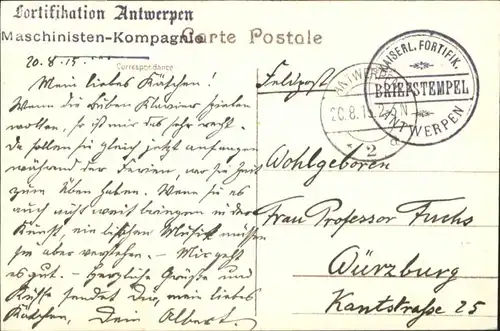 Fortifikation Antwerpen
Maschinisten-Kompagnie
Carte Postale
Correspondance
20.8.15.
Mein liebes Kätchen!
Wenn die Buben Klavier spielen
wollen, so ist mir das sehr recht.
Da sollen sie gleich jetzt anfangen
während der Ferien, wo sie Zeit
zum Üben haben. Wenn sie es
auch nicht weit bringen in der
Kunst, ein bischen Musik müssen
sie aber verstehen. - Mir geht
es gut. - Herzliche Grüße und
Küsse sendet Dir, mein liebes
Kätchen, Dein Albert.
Feldpost
ANTWERPEN
20.8.15
2
KAISERL. FORTIFIK.
BRIEFSTEMPEL
ANTWERPEN
Wohlgeboren
Frau Professor Fuchs
Würzburg
Kantstraße 25